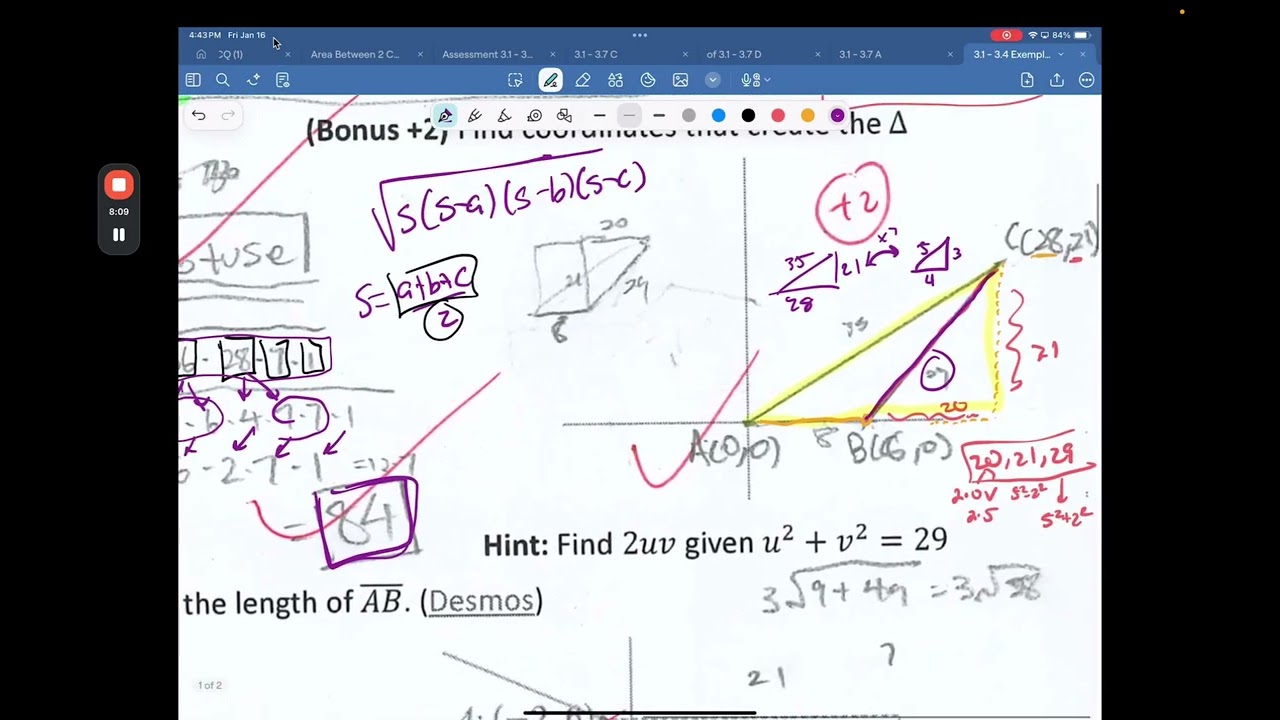 4:43 PM Fri Jan 16
84%
Area Between 2 C...
Assessment 3.1 – 3...
3.1 – 3.7 C
of 3.1 – 3.7 D
3.1 – 3.7 A
3.1 – 3.4 Exempl...
8:09
(Bonus +2) Find coordinates that create the Δ
√s(s-a)(s-b)(s-c)
+2
C(28,21)
20
35
21
x7
5
3
28
4
otuse
S= a+b+c
2
21
29
8
35
21
28 · 7 · 1
20
6 · 4
7 · 1
A(0,0)
8
B(8,0)
20, 21, 29
- 2 - 7 - 1
2·uv
5²-2²
2·5
5²+2²
= 84
Hint: Find 2uv given u² + v² = 29
3√9+49 = 3√58
the length of AB. (Desmos)
7
21
1 of 2